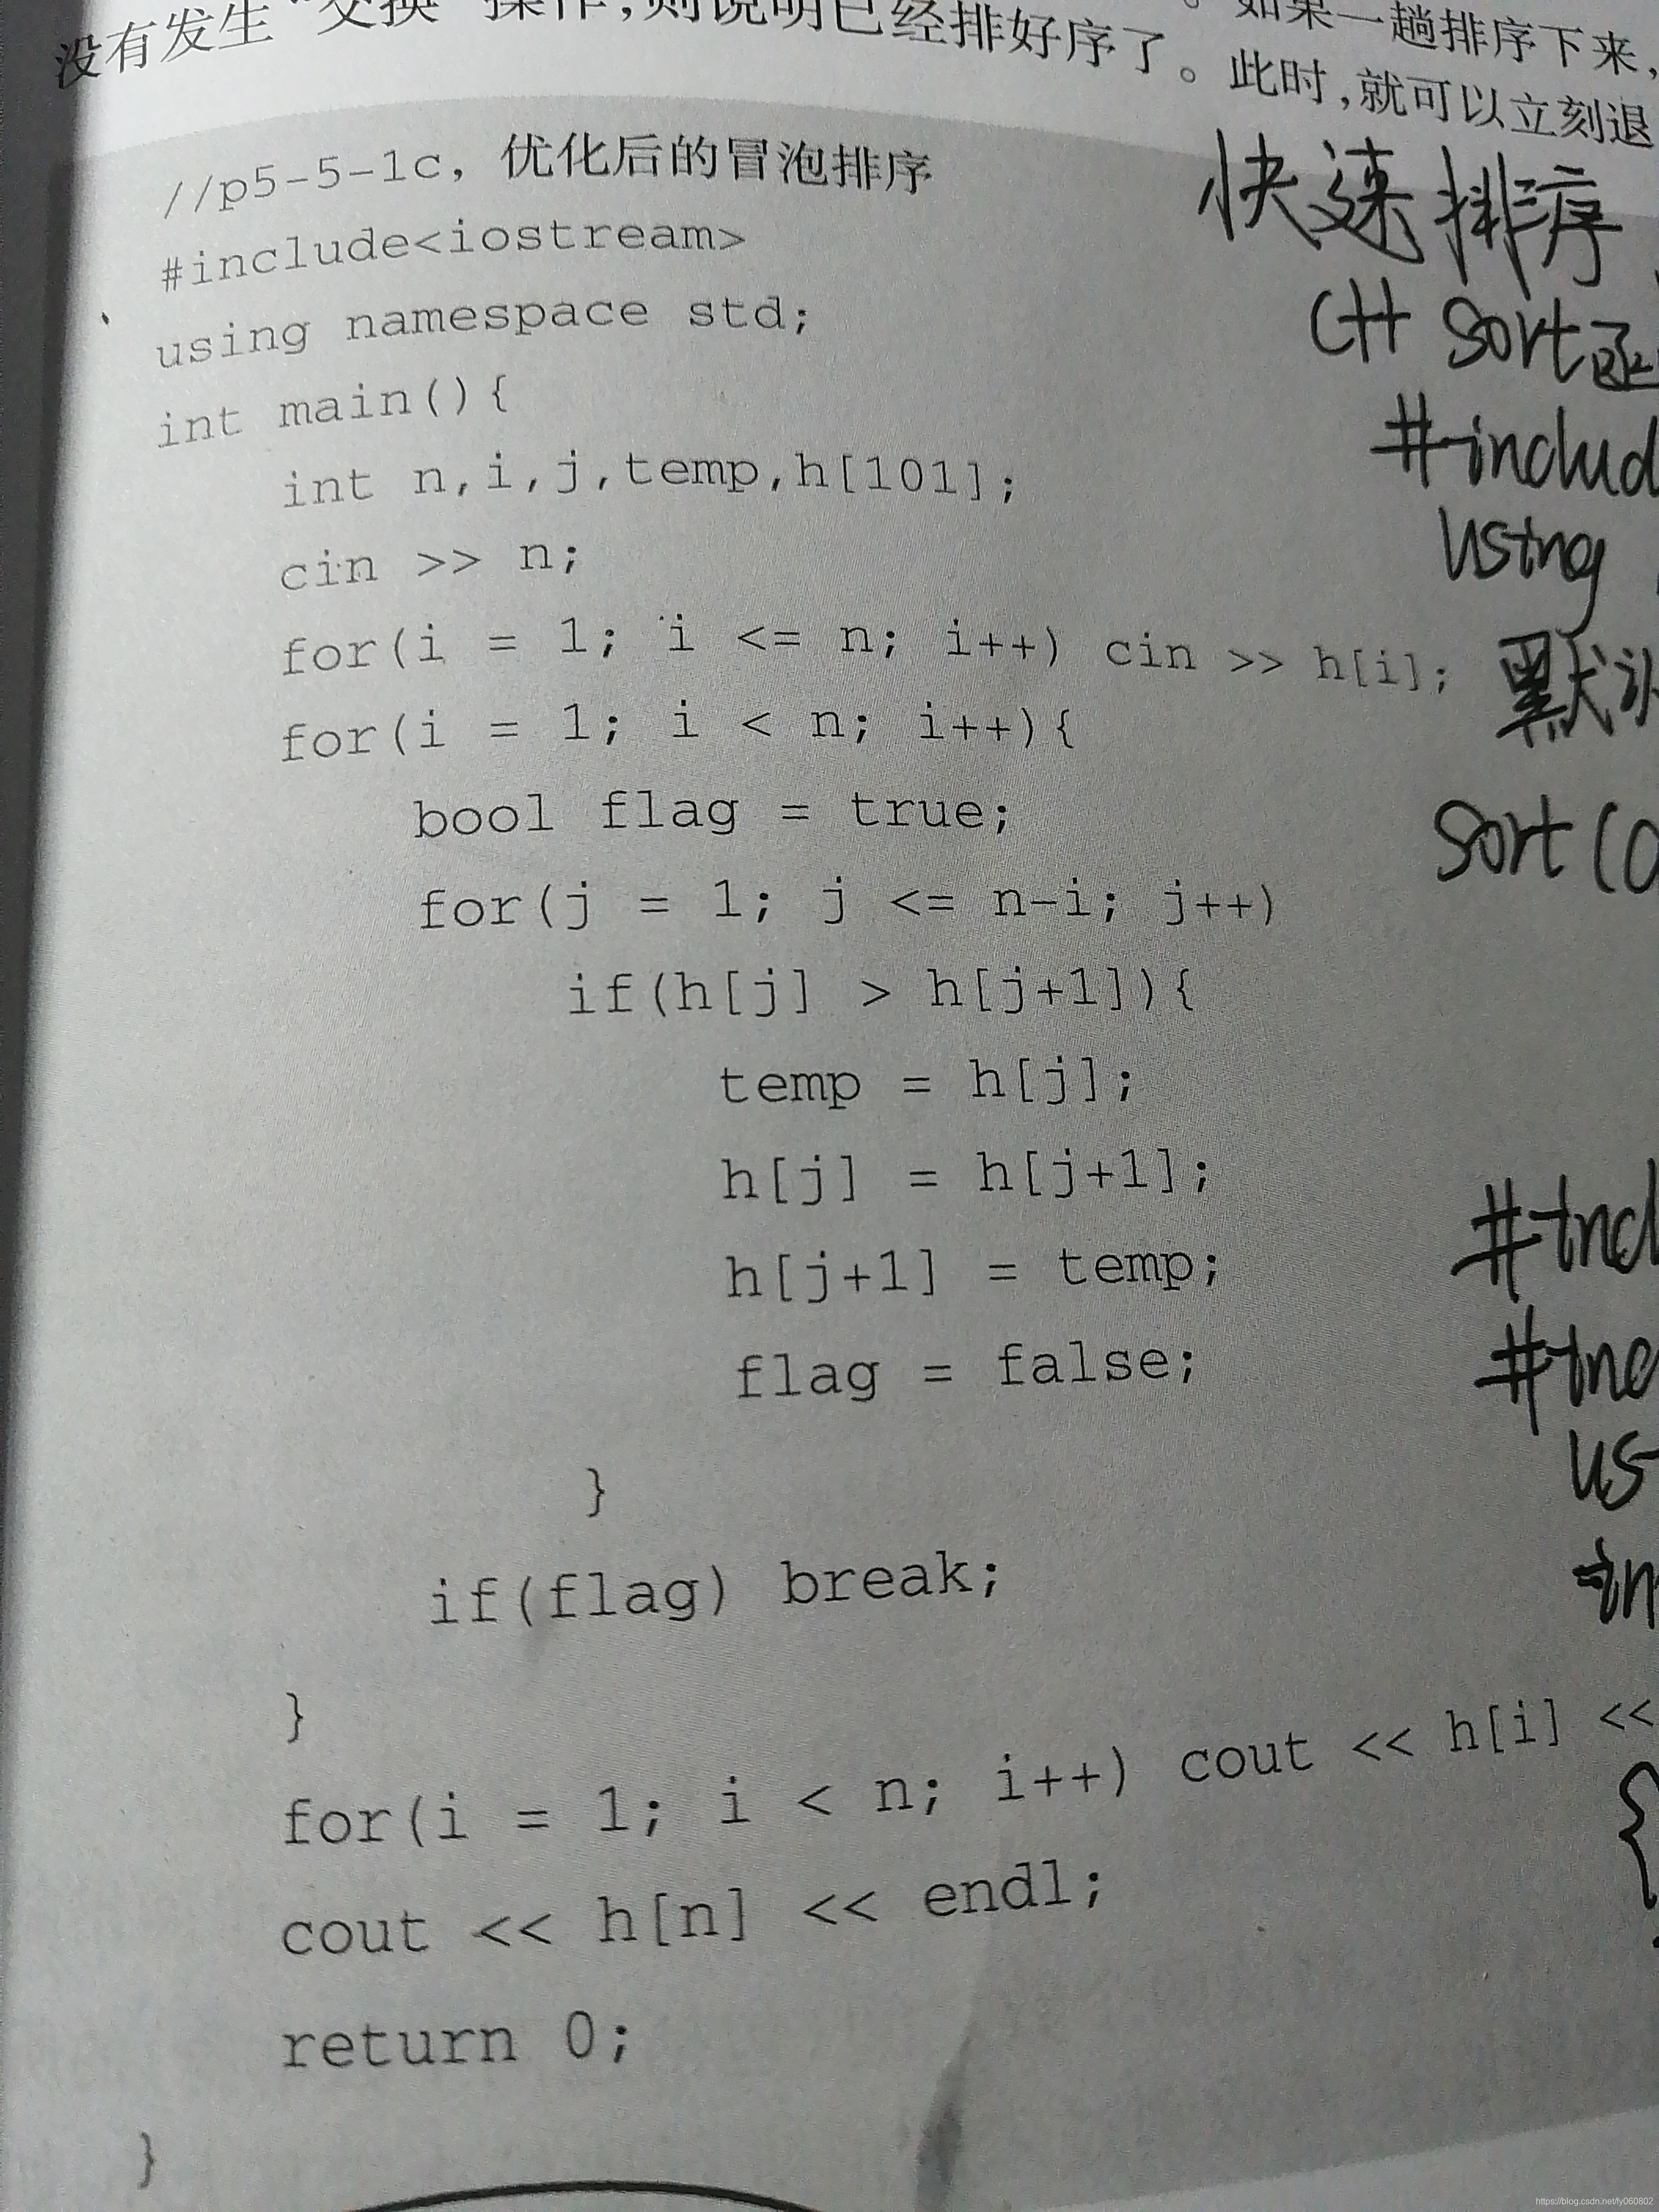 如果一趟排序下来,
没有发生“交换”操作,则说明已经排好序了。此时,就可以立刻退
//p5-5-1c, 优化后的冒泡排序
#include<iostream>
using namespace std;
int main(){
int n,i,j,temp,h[101];
cin >> n;
for(i = 1; i <= n; i++) cin >> h[i];
for(i = 1; i < n; i++){
bool flag = true;
for(j = 1; j <= n-i; j++)
if(h[j] > h[j+1]){
temp = h[j];
h[j] = h[j+1];
h[j+1] = temp;
flag = false;
}
if(flag) break;
}
for(i = 1; i < n; i++) cout << h[i] <<
cout << h[n] << endl;
return 0;
}
快速排序
C++ sort函
#includ
using
默认
sort(
#incl
#inc
us
in
{
https://blog.csdn.net/fy060802